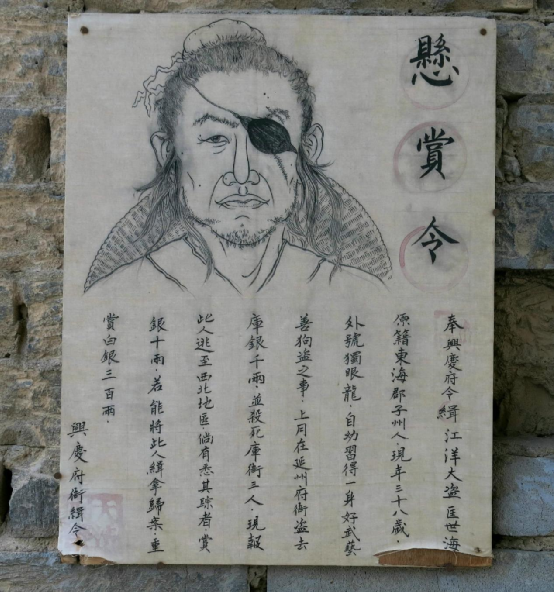 懸賞令
奉興慶府令緝江洋大盜匡世海
原籍東海郡子州人，現年三十八歲，
外號獨眼龍，自幼習得一身好武藝
善狗盜之事，上月在延州府衙盜去
庫銀千兩，並殺死庫衙三人，現報
此人逃至西北地區，倘有悉其踪者賞
銀十兩，若能將此人緝拿歸案，重
賞白銀三百兩，
興慶府衙緝令